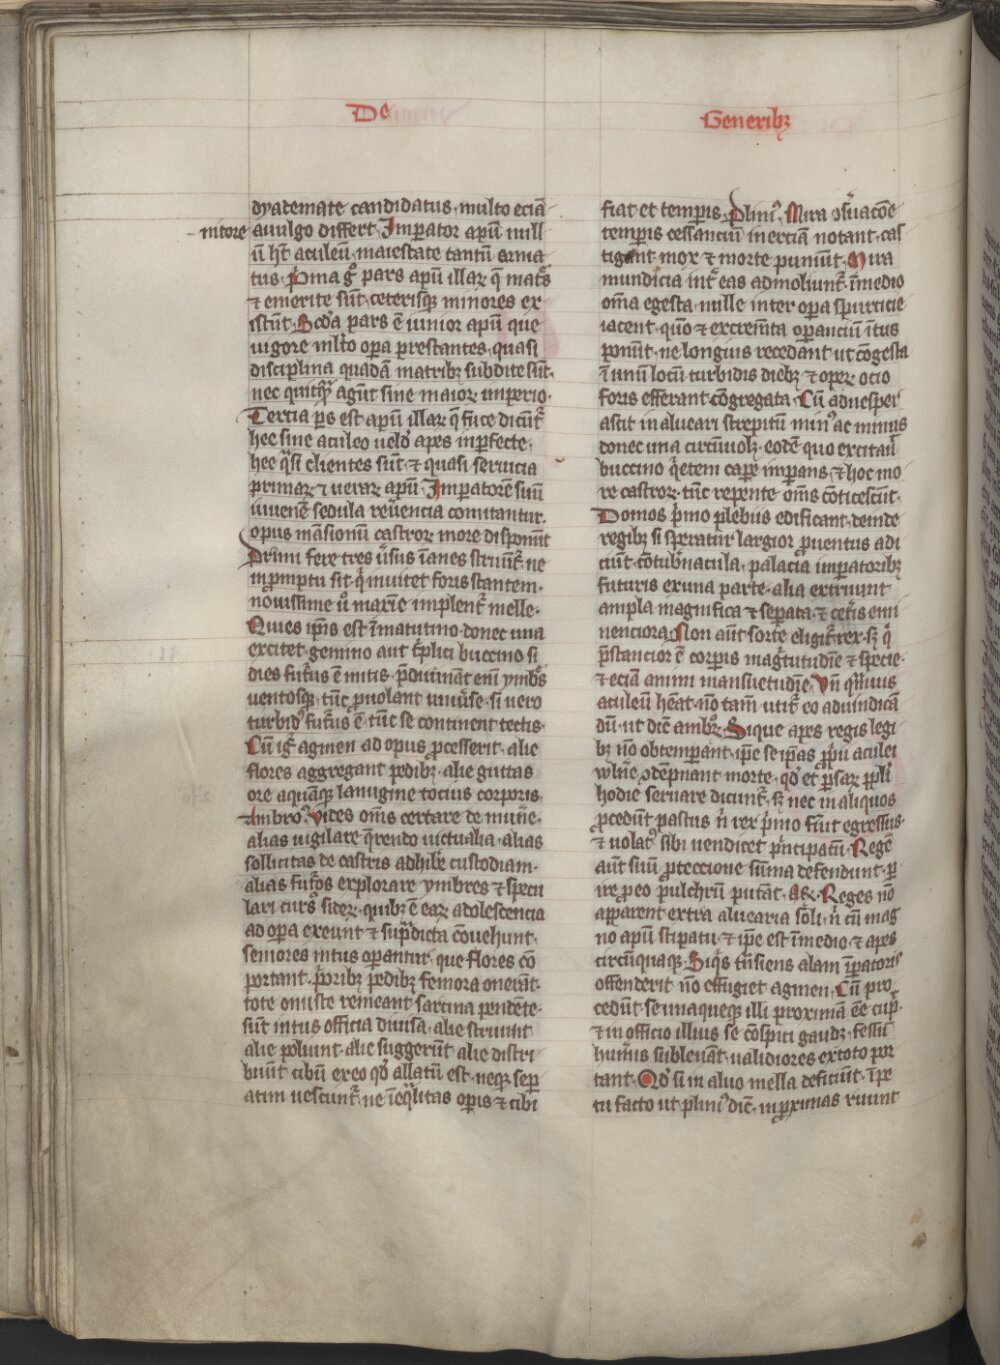 De
Generibꝫ
dyademate candidatus · multo eciā
- nitore
auulgo differt · Imperator apū null
ū hꝫ aculeū · maiestate tantū arma
tus · Pͥma gͦ pars apū illaꝝ q̄ matͦs
⁊ emerite sūt · ceterisqꝫ minores ex
istūt · Scd̄a pars ē iunior apū que
uigore mlto opa prestantes · quasi
disciplina quadā matribꝫ subdite sūt ·
nec agūt sine maioꝝ imperio ·
Tercia ps est apū illaꝝ q̄ fuce dicūtᷣ
hee sine aculeo uelͦ apes inperfecte ·
hee qͣsi clientes sūt · ⁊ quasi seruicia
primaꝝ · ⁊ ueraꝝ apū · Imperatorē suū
uiuenē sedula reuencia comitantur ·
opus māsionū castroꝝ more disponūt
Primi fere tres ūsus ianes struūtᷣ · ne
inpmptu sit qͥ inuitet foris stantem ·
nouissime ū maxie implentᷣ melle ·
Quies ipis est īmatutino · donec una
excitet · gemino aut tͥplici buccino si
dies futᷣus ē mitis · pͣdiuināt enī ymbͤs
uentosqꝫ · tūc puolant uniūse · si uero
turbidꝰ futᷣus ē tūc se continent tectis ·
Cū igᷣ agmen ad opus pcesserit · alie
flores aggregant pedibꝫ · alie guttas
ore aquāqꝫ lanugine tocius corporis ·
Ambroꝰ · Vides om̄s certare de mun̄e ·
alias uigilare q̄rendo uictualia · alias
sollicitas de castris adhibe custodiam ·
alias futᷣos explorare ymbres ⁊ specu
lari cursꝰ sideꝝ · quibꝫ ē eaꝝ adolescencia
ad opa exeunt ⁊ supͣdicta cōuehunt ·
seniores intus operantur · que flores cō
portant · pͥoribꝫ pedibꝫ femora onerāt ·
tote onuste remeant sarcina pendēte ·
sūt intus officia diuisa · alie struunt
alie poliunt · alie suggerūt alie distri
buūt cibū ex eo qd̄ allatū est · neqꝫ sepͣ
atim uescuntᷣ · ne īeqͣlitas opis ⁊ cibi
fiat et tempis · Pliniꝰ · Mira ꝯseruacōe
tempis cessanciū inerciam notant · cas
tigant mox ⁊ morte puniūt · Mira
mundicia intᷣ eas admoliuntᷣ · īmedio
om̄a egesta · nulle inter opa spurcicie
iacent · quō ⁊ excrem̄ta operanciū ītus
ponūt · ne longius recedant ut cōgesta
ī unū locū turbidis diebꝫ ⁊ opeꝝ ocio
foris efferant cōgregata · Cū aduesper
ascit in alueari strepitū minꝰ ac minus
donec una circūuolꝫ · eodē quo excitau̅
buccino qͥetem cape imperans · ⁊ hoc mo
re castroꝝ · tūc repente om̄s cōticescūt ·
Domos pͥmo plebius edificant · deinde
regibꝫ si speratur largior puentus adi
ciūt · cōtubn̄acula · palacia imperatoribꝫ
futuris ex una parte · alia extruunt
ampla magnifica ⁊ sepata · ⁊ cetᷣis emi
nenciora · Non aūt sorte eligitᷣ rex · sꝫ qͥ
pͣstancior ē corpis magͥtudīe ⁊ specie ·
⁊ eciā animi mansuetudīe · Vn̄ quāuis
aculeū heāt · nō tam̄ utitᷣ eo aduindicā
dū · ut dic̄ ambrꝰ · Sique apes regis legi
bꝫ nō obtemperant · ipe se ipas ppͥi aculei
wln̄e ꝯdēpnant morte · qd̄ et psaꝝ ppl̄i
hodie seruare dicuntᷣ · sꝫ nec in aliquos
pcedūt pastus n̄ rex pͥmo fūit egressus ·
⁊ uolatꝰ sibi uendicet pͥncipatū · Regē
aūt suū proteccione sūma defendunt · p
ire p eo pulchrū putāt · Reges nō
apparent extra aluearia soli · n̄ cū mag
no apū stipatu · ⁊ ipe est īmedio · ⁊ apes
circūquaqꝫ · Siq̄s trāsiens alam īperatoris
offenderit nō effugiet agmen · Cū pro
cedūt · se unaqueqꝫ illi proximā ēe cupͥ ·
⁊ in officio illius se cōspici gaudꝫ · fessū
hum̄is subleuāt · ualidiores ex toto por
tant · Qd̄ si in aluo mella deficiūt · īpe
tu facto ut pliniꝰ dic̄ · in pximas ruunt